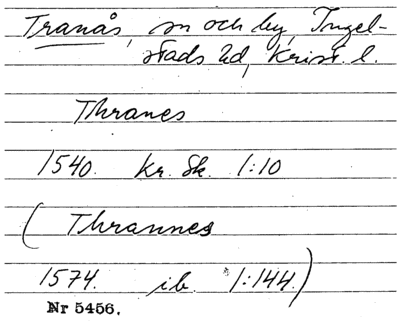 Tranås, sn och by, Ingel-
stads hd, Krist. l.
Thranes
1540. Kr. Sk. 1:10
( Thrannes
1574. ib. 1:144.)
Nr 5456.